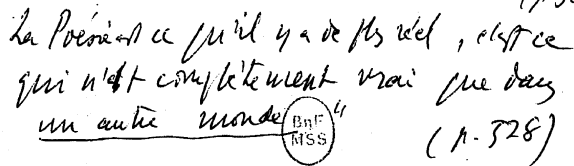 La Poésie est ce qu'il y a de plus réel, c'est ce
qui n'est complètement vrai que dans
un autre monde"
BnF
MSS
(p. 328)